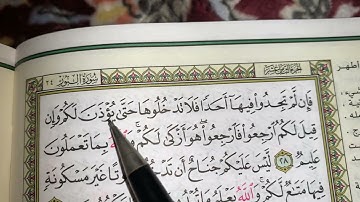 سورة النور ٢٤
فَإِن لَّمْ تَجِدُوا۟ فِيهَآ أَحَدًا فَلَا تَدْخُلُوهَا حَتَّىٰ يُؤْذَنَ لَكُمْ وَإِن
قِيلَ لَكُمُ ٱرْجِعُوا۟ فَٱرْجِعُوا۟ هُوَ أَزْكَىٰ لَكُمْ بِمَا تَعْمَلُونَ
عَلِيمٌ ٢٨ لَّيْسَ عَلَيْكُمْ جُنَاحٌ أَن تَدْخُلُوا۟ غَيْرَ مَسْكُونَةٍ
فِيهَا مَتَٰعٌ لَّكُمْ وَٱللَّهُ يَعْلَمُ مَا